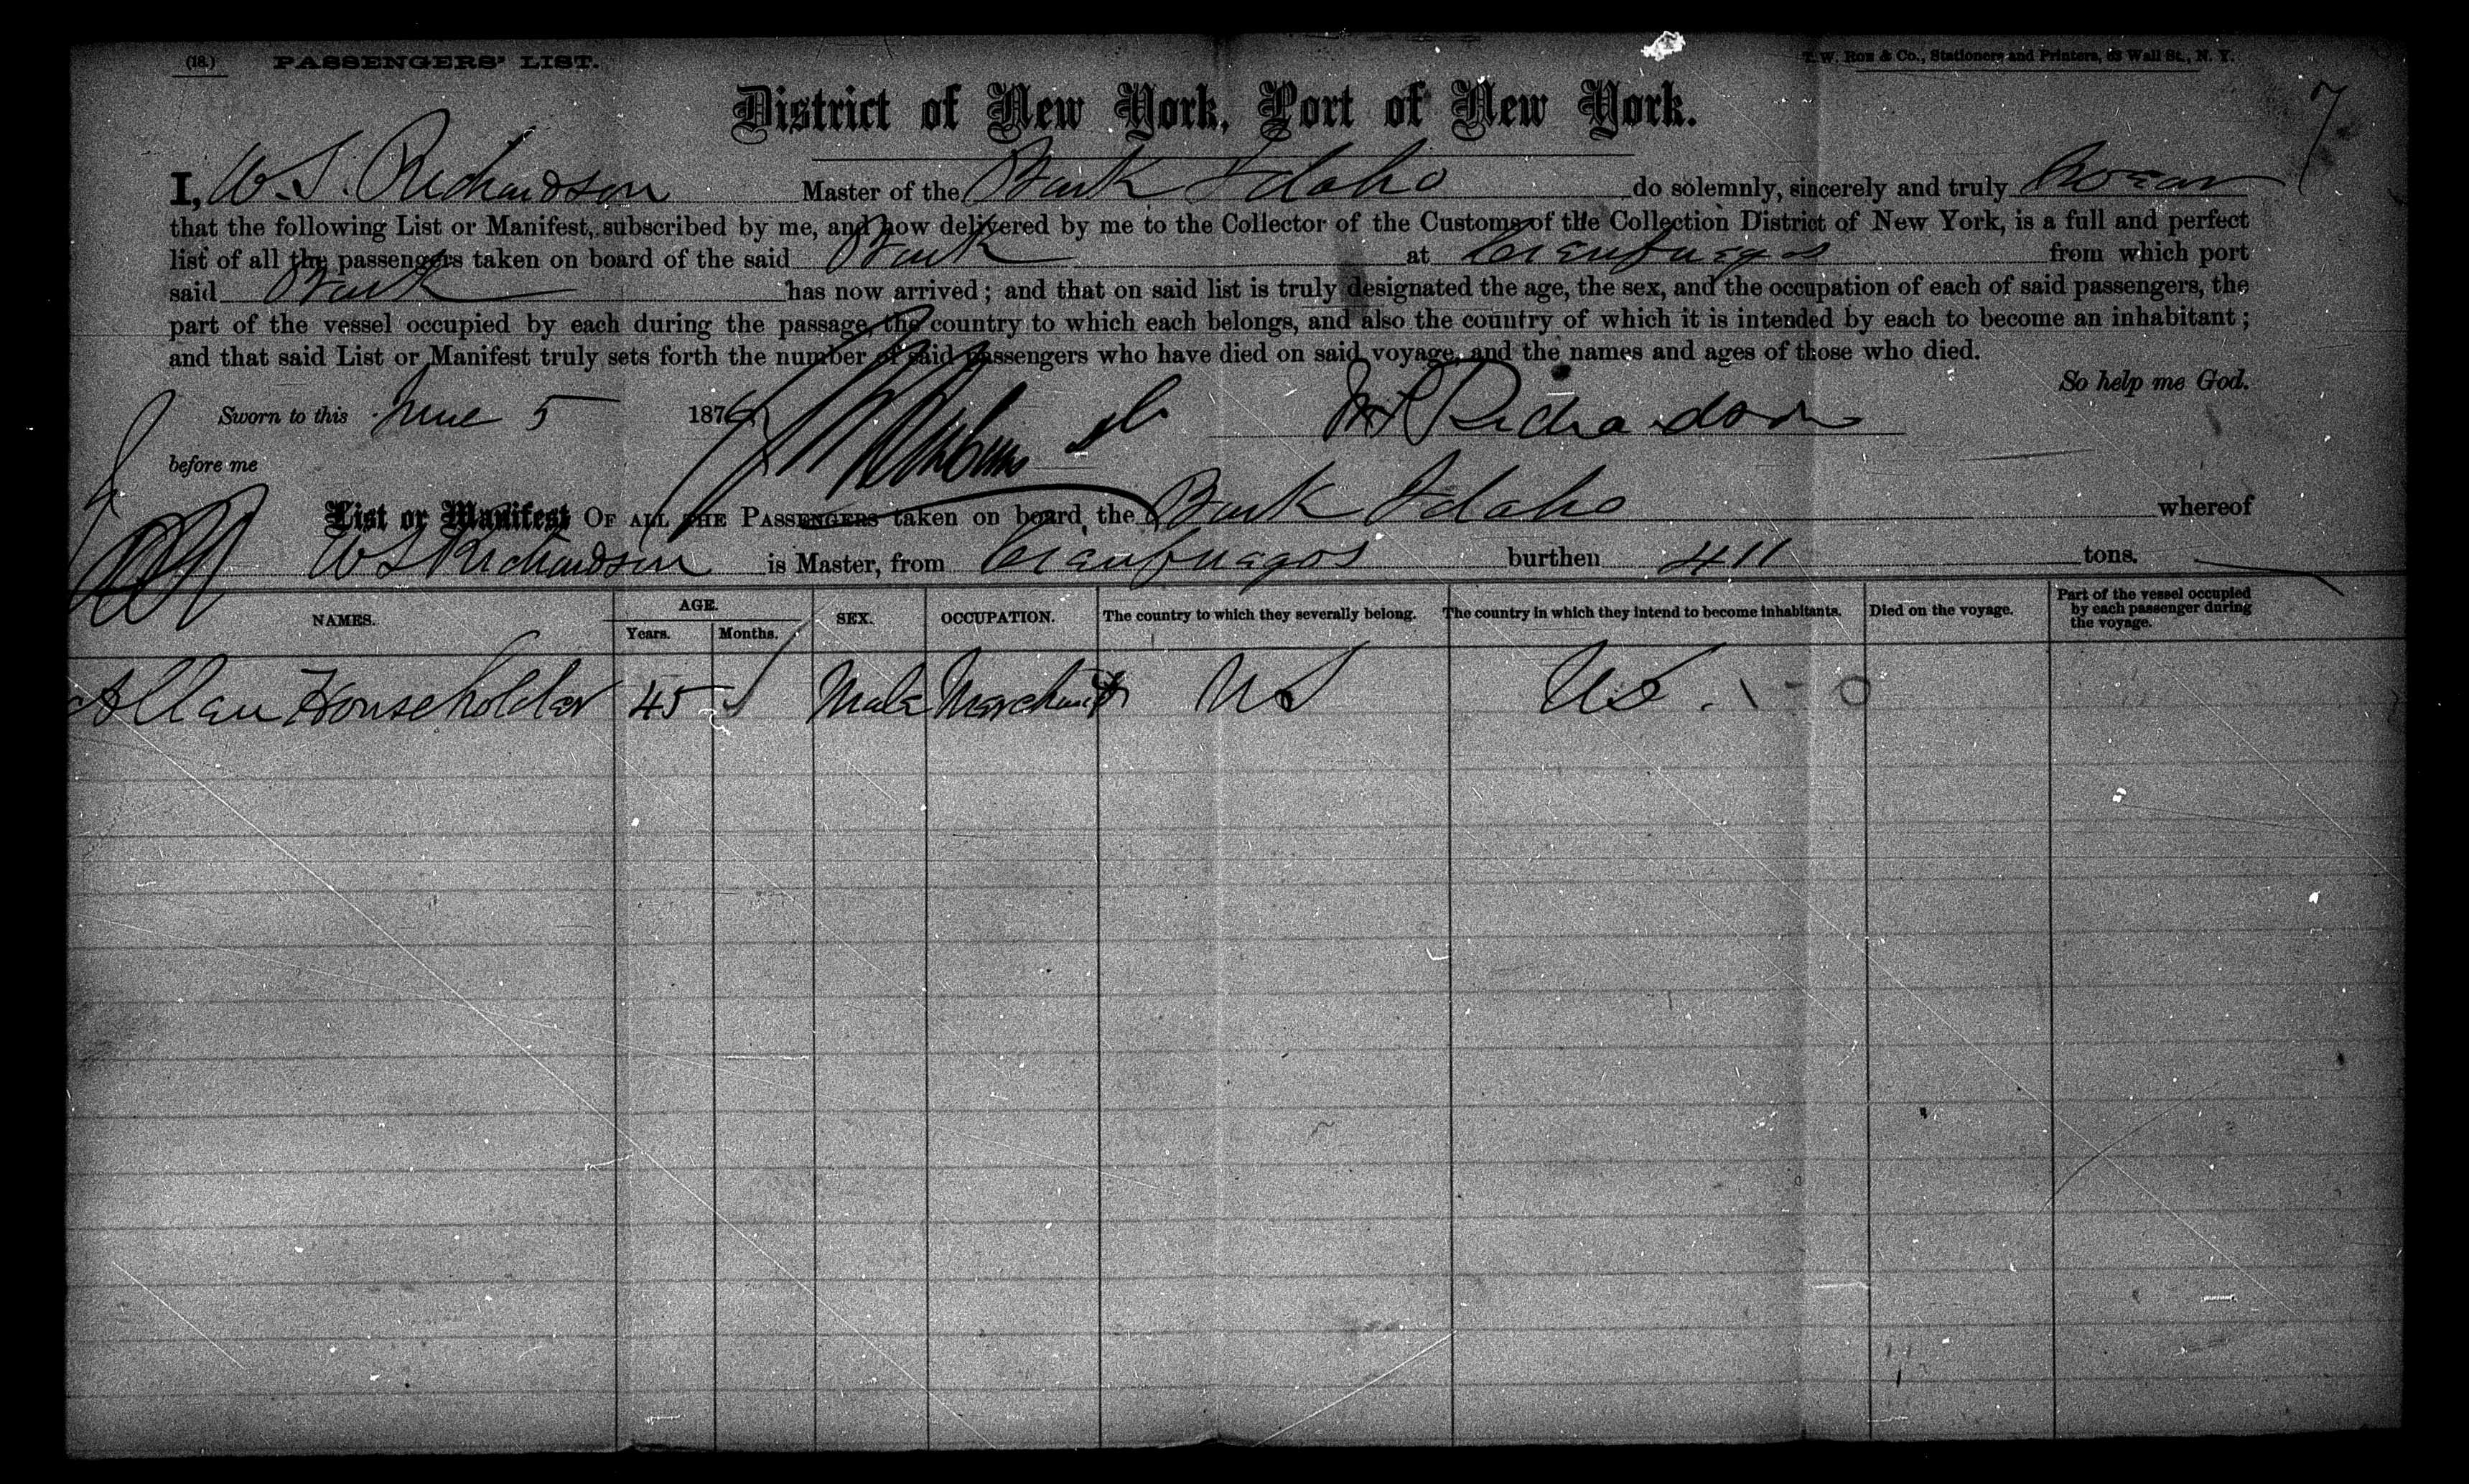 (18.) PASSENGERS' LIST. T. W. Row & Co., Stationers and Printers, 63 Wall St., N. Y.
7
District of New York, Port of New York.
I, W. S. Richardson Master of the Bark Idaho do solemnly, sincerely and truly Swear
that the following List or Manifest, subscribed by me, and now delivered by me to the Collector of the Customs of the Collection District of New York, is a full and perfect
list of all the passengers taken on board of the said Bark at Cienfuegos from which port
said Bark has now arrived; and that on said list is truly designated the age, the sex, and the occupation of each of said passengers, the
part of the vessel occupied by each during the passage, the country to which each belongs, and also the country of which it is intended by each to become an inhabitant;
and that said List or Manifest truly sets forth the number of said passengers who have died on said voyage, and the names and ages of those who died.
So help me God.
Sworn to this June 5 1876 Richardson
before me
List or Manifest OF ALL THE PASSENGERS taken on board the Bark Idaho whereof
W S Richardson is Master, from Cienfuegos burthen 411 tons.
NAMES. AGE. Years. Months. SEX. OCCUPATION. The country to which they severally belong. The country in which they intend to become inhabitants. Died on the voyage. Part of the vessel occupied by each passenger during the voyage.
Allan Householder 45 Male Merchant US US. 1 - 0